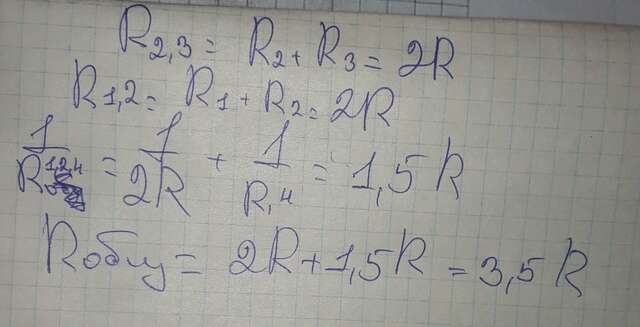 R2,3 = R2 + R3 = 2R
R1,2 = R1 + R2 = 2R
1/R1,2,4 = 1/2R + 1/R,4 = 1,5 R
Rобщ = 2R + 1,5R = 3,5 R